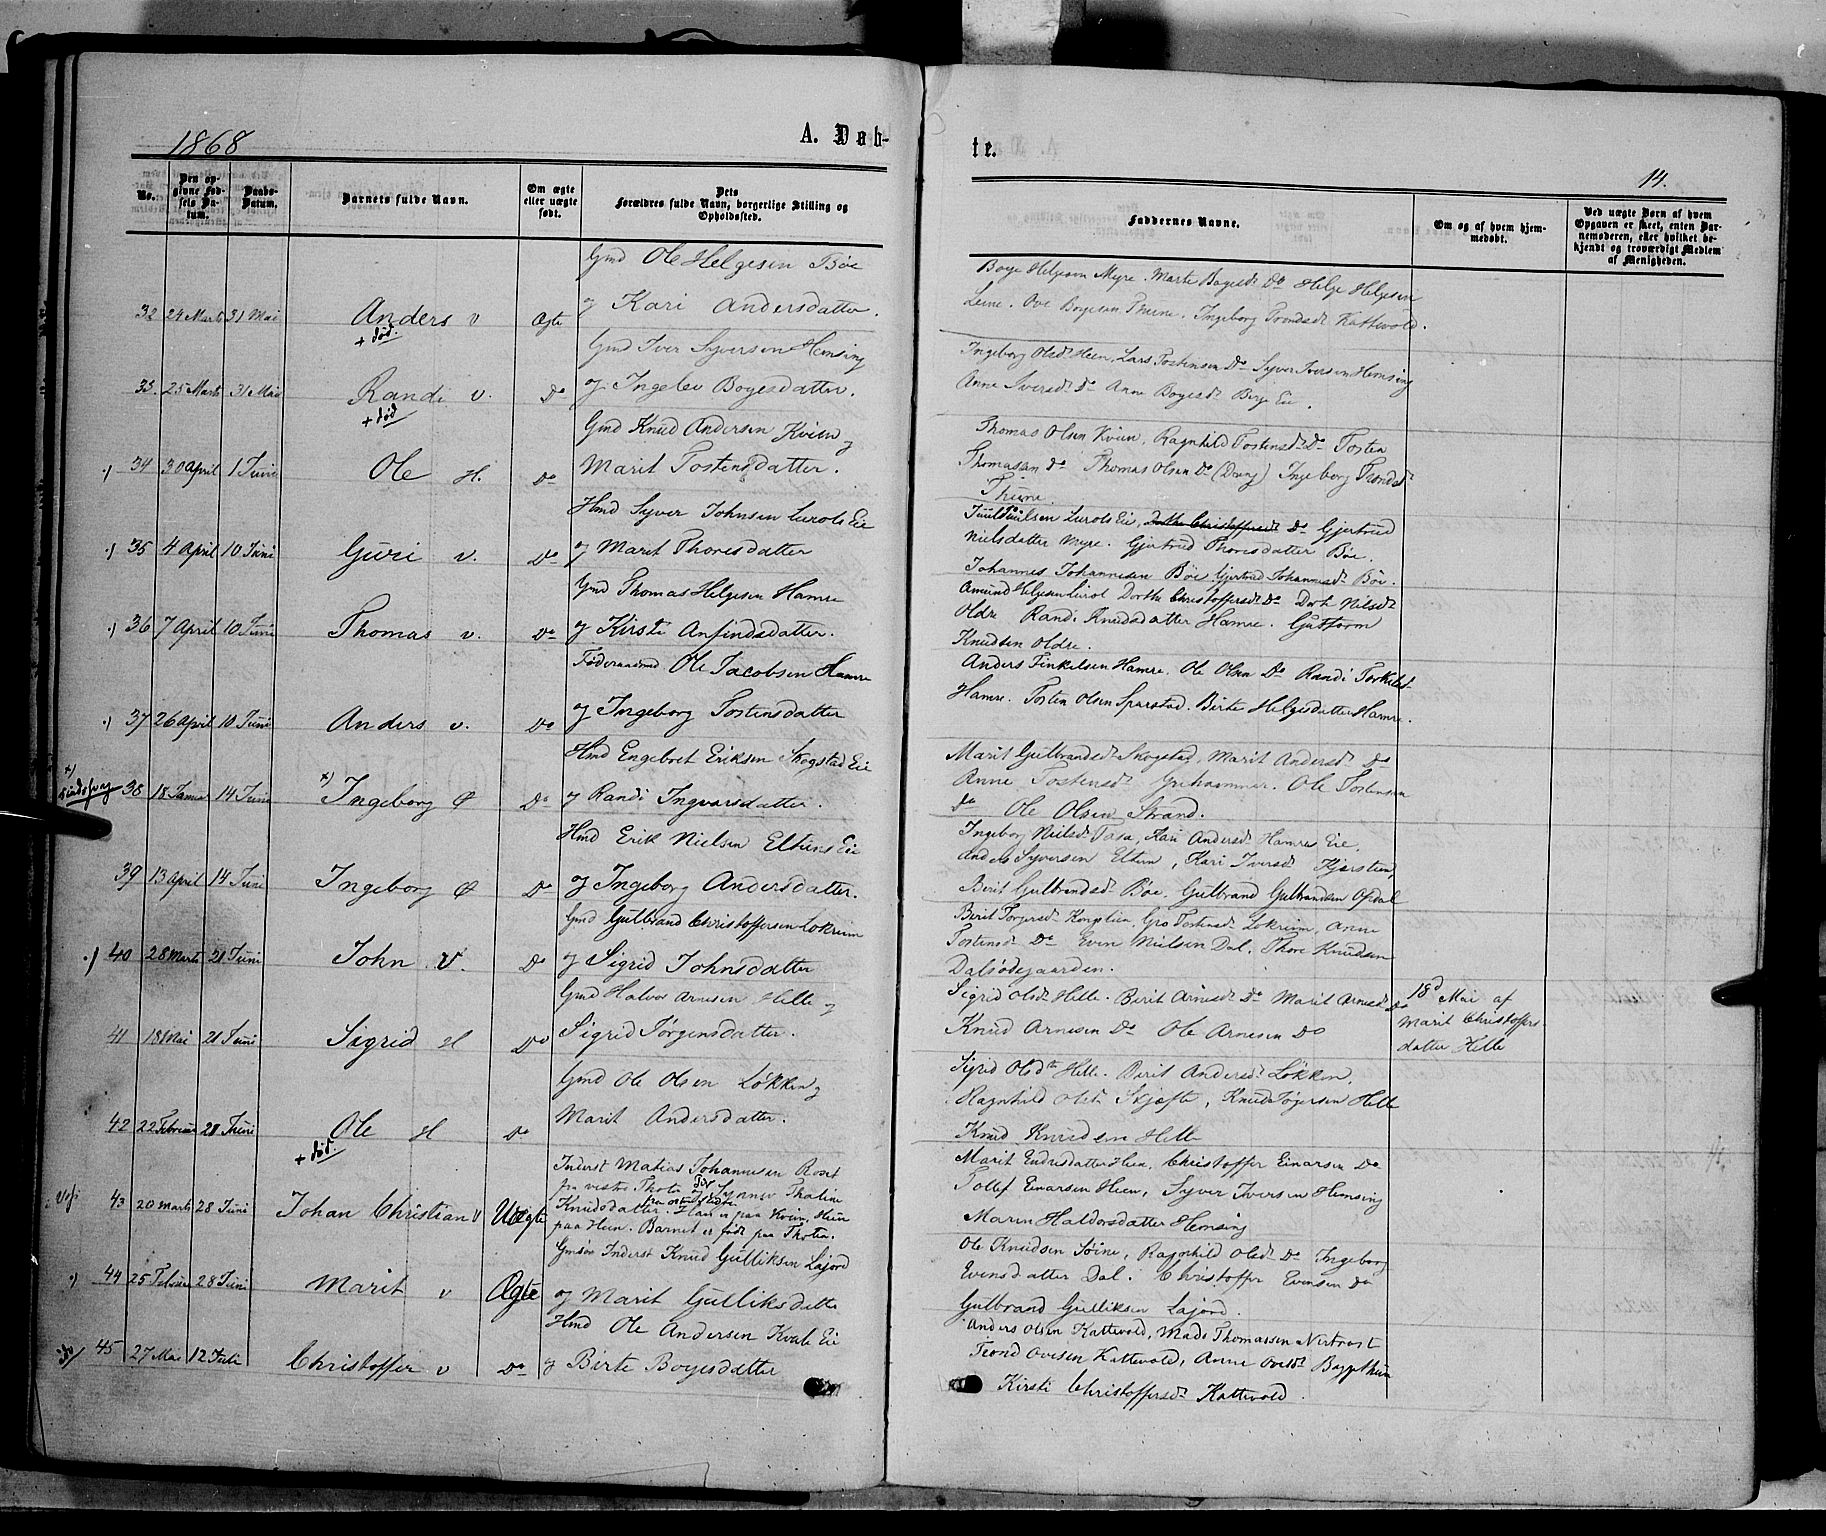 1868
A. Døb-
te.
14.
No.
Den opgivne Fødsels Datum.
Daabs-Datum.
Barnets fulde Navn.
Om ægte eller uægte født.
Dets Forældres fulde Navn, borgerlige Stilling og Opholdssted.
Faddernes Navne.
Om og af hvem hjemmedøbt.
Ved uægte Børn af hvem Opgaven er skeet, enten Barnemoderen, eller hvilket bekjendt og troværdigt Medlem af Menigheden.
32 24 Marts 31 Mai Anders v Ægte
+ død.
Gmd Ole Helgesen Bøe
og Kari Andersdatter.
Boye Helgesen Myre. Marte Bogesdr Do Helge Helgesen
Leine. Ove Boyesen Thune. Ingeborg Trondsdr Kattevold.
33. 25 Marts 31 Mai Randi v. Do
+ død
Gmd Iver Syversen Hemsing
og Ingelev Boyesdatter.
Ingeborg Olsdr Heen, Lars Tostensen Do Syver Iversen Hemsing
Anne Iversdr Do Anne Boyesdr Eie.
34 30 April 1 Juni Ole H. Do
Gmd Knud Andersen Kvien og
Marit Tostensdatter.
Thomas Olsen Kvien, Ragnhild Tostensdr Do Tosten
Thomasen Do Thomas Olsen Do (Dreng) Ingeborg Trondsdr
Thune.
35 4 April 10 Juni Guri v. Do
Hmd Syver Johnsen Lerols Eie
og Marit Thoresdatter
Nielsen Lerols Eie, Dorthe Christoffersdr Do Gjertrud
Nielsdatter Myre. Gjertrud Thoresdatter Bøe.
Johannes Johannesen Bøe Gjertrud Johannesdr Bøe.
36 7 April 10 Juni Thomas v. Do
Gmd Thomas Helgesen Hamre
og Kirsti Anfindsdatter.
Amund Helgesen Lerol Dorthe Christoffersdr Do Dort Nilsdr
Oldre Randi Knudsdatter Hamre. Guttorm
Knudsen Oldre.
37 26 April 10 Juni Anders v. Do
Føderaadsmd Ole Jacobsen Hamre
og Ingeborg Tostensdatter
Anders Tinkelsen Hamre. Ole Olsen Do Randi Torkelsdr
Hamre. Tosten Olsen Sparstad. Birte Helgesdatter Hamre.
x) Sindssvag 38 18 Januar 14 Juni x) Ingeborg Ø Do
Hmd Engebret Eriksen Skogstad Eie
og Randi Ingvarsdatter.
Marit Gulbrandsdr Skogstad, Marit Andersdr Do
Anne Tostensdr Ole Tostensen
Do Ole Olsen Strand.
39 13 April 14 Juni Ingeborg Ø Do
Hmd Erik Nielsen Eltuns Eie
og Ingeborg Andersdatter.
Ingeborg Nielsdr Kari Andersdr Hamres Eie,
Anders Syversen Eltun, Kari Iversdr
Berit Gulbrandsdr Bøe, Gulbrand Gulbrandsen Ofsdal
40 28 Marts 21 Juni John V. Do
Gmd Gulbrand Christoffersen Lokreim
og Sigrid Johnsdatter
Berit Torgersdr Gro Tostensdr Lokreim, Anne
Tostensdr Do Even Nielsen Dal, Thore Knudsen
Dalsødegaarden.
41 18 Mai 21 Juni Sigrid H Do
Gmd Halvor Arnesen Helle og
Sigrid Jørgensdatter.
Sigrid Olsdr Helle. Berit Arnesdr Do Marit Arnesdr Do
Knud Arnesen Do Ole Arnesen Do
18d Mai af
Marit Christoffers-
datter Helle
42 22 Februar 21 Juni Ole H Do
+ død.
Gmd Ole Olsen Løkken og
Marit Andersdatter.
Sigrid Olsdtr Helle. Berit Andersdr Løkken,
Ragnhild Olsdr Skjefte, Knud Jøgersen Helle
Knud Knudsen Helle
43 20 Marts 28 Juni Johan Christian V Uægte
Inderst Matias Johannesen Roset
fra vestre Thoten og Synnøv Thaline
Knudsdatter. Han er paa Kvien, Hun
paa Heen. Barnet er født paa Thoten.
Marit Endresdatter Heen, Christoffer Einarsen Do
Tollef Einarsen Heen, Syver Iversen Hemsing
Maren Haldorsdatter Hemsing
44 25 Februar 28 Juni Marit v Ægte
Gmsøn Inderst Knud Gulliksen Lajord
og Marit Gulliksdatter
Ole Knudsen Søine, Ragnhild Olsdr Do Ingeborg
Evensdatter Dal. Christoffer Evensen Do
Gulbrand Gulliksen Lajord.
45 27 Mai 12 Juli Christoffer v Do
Hmd Ole Andersen Kvale Eie
og Birte Boyesdatter
Anders Olsen Kattevold, Mads Thomassen
Trond Ovesen Kattevold, Anne Ovesdr
Kirsti Christoffersdr Kattevold.